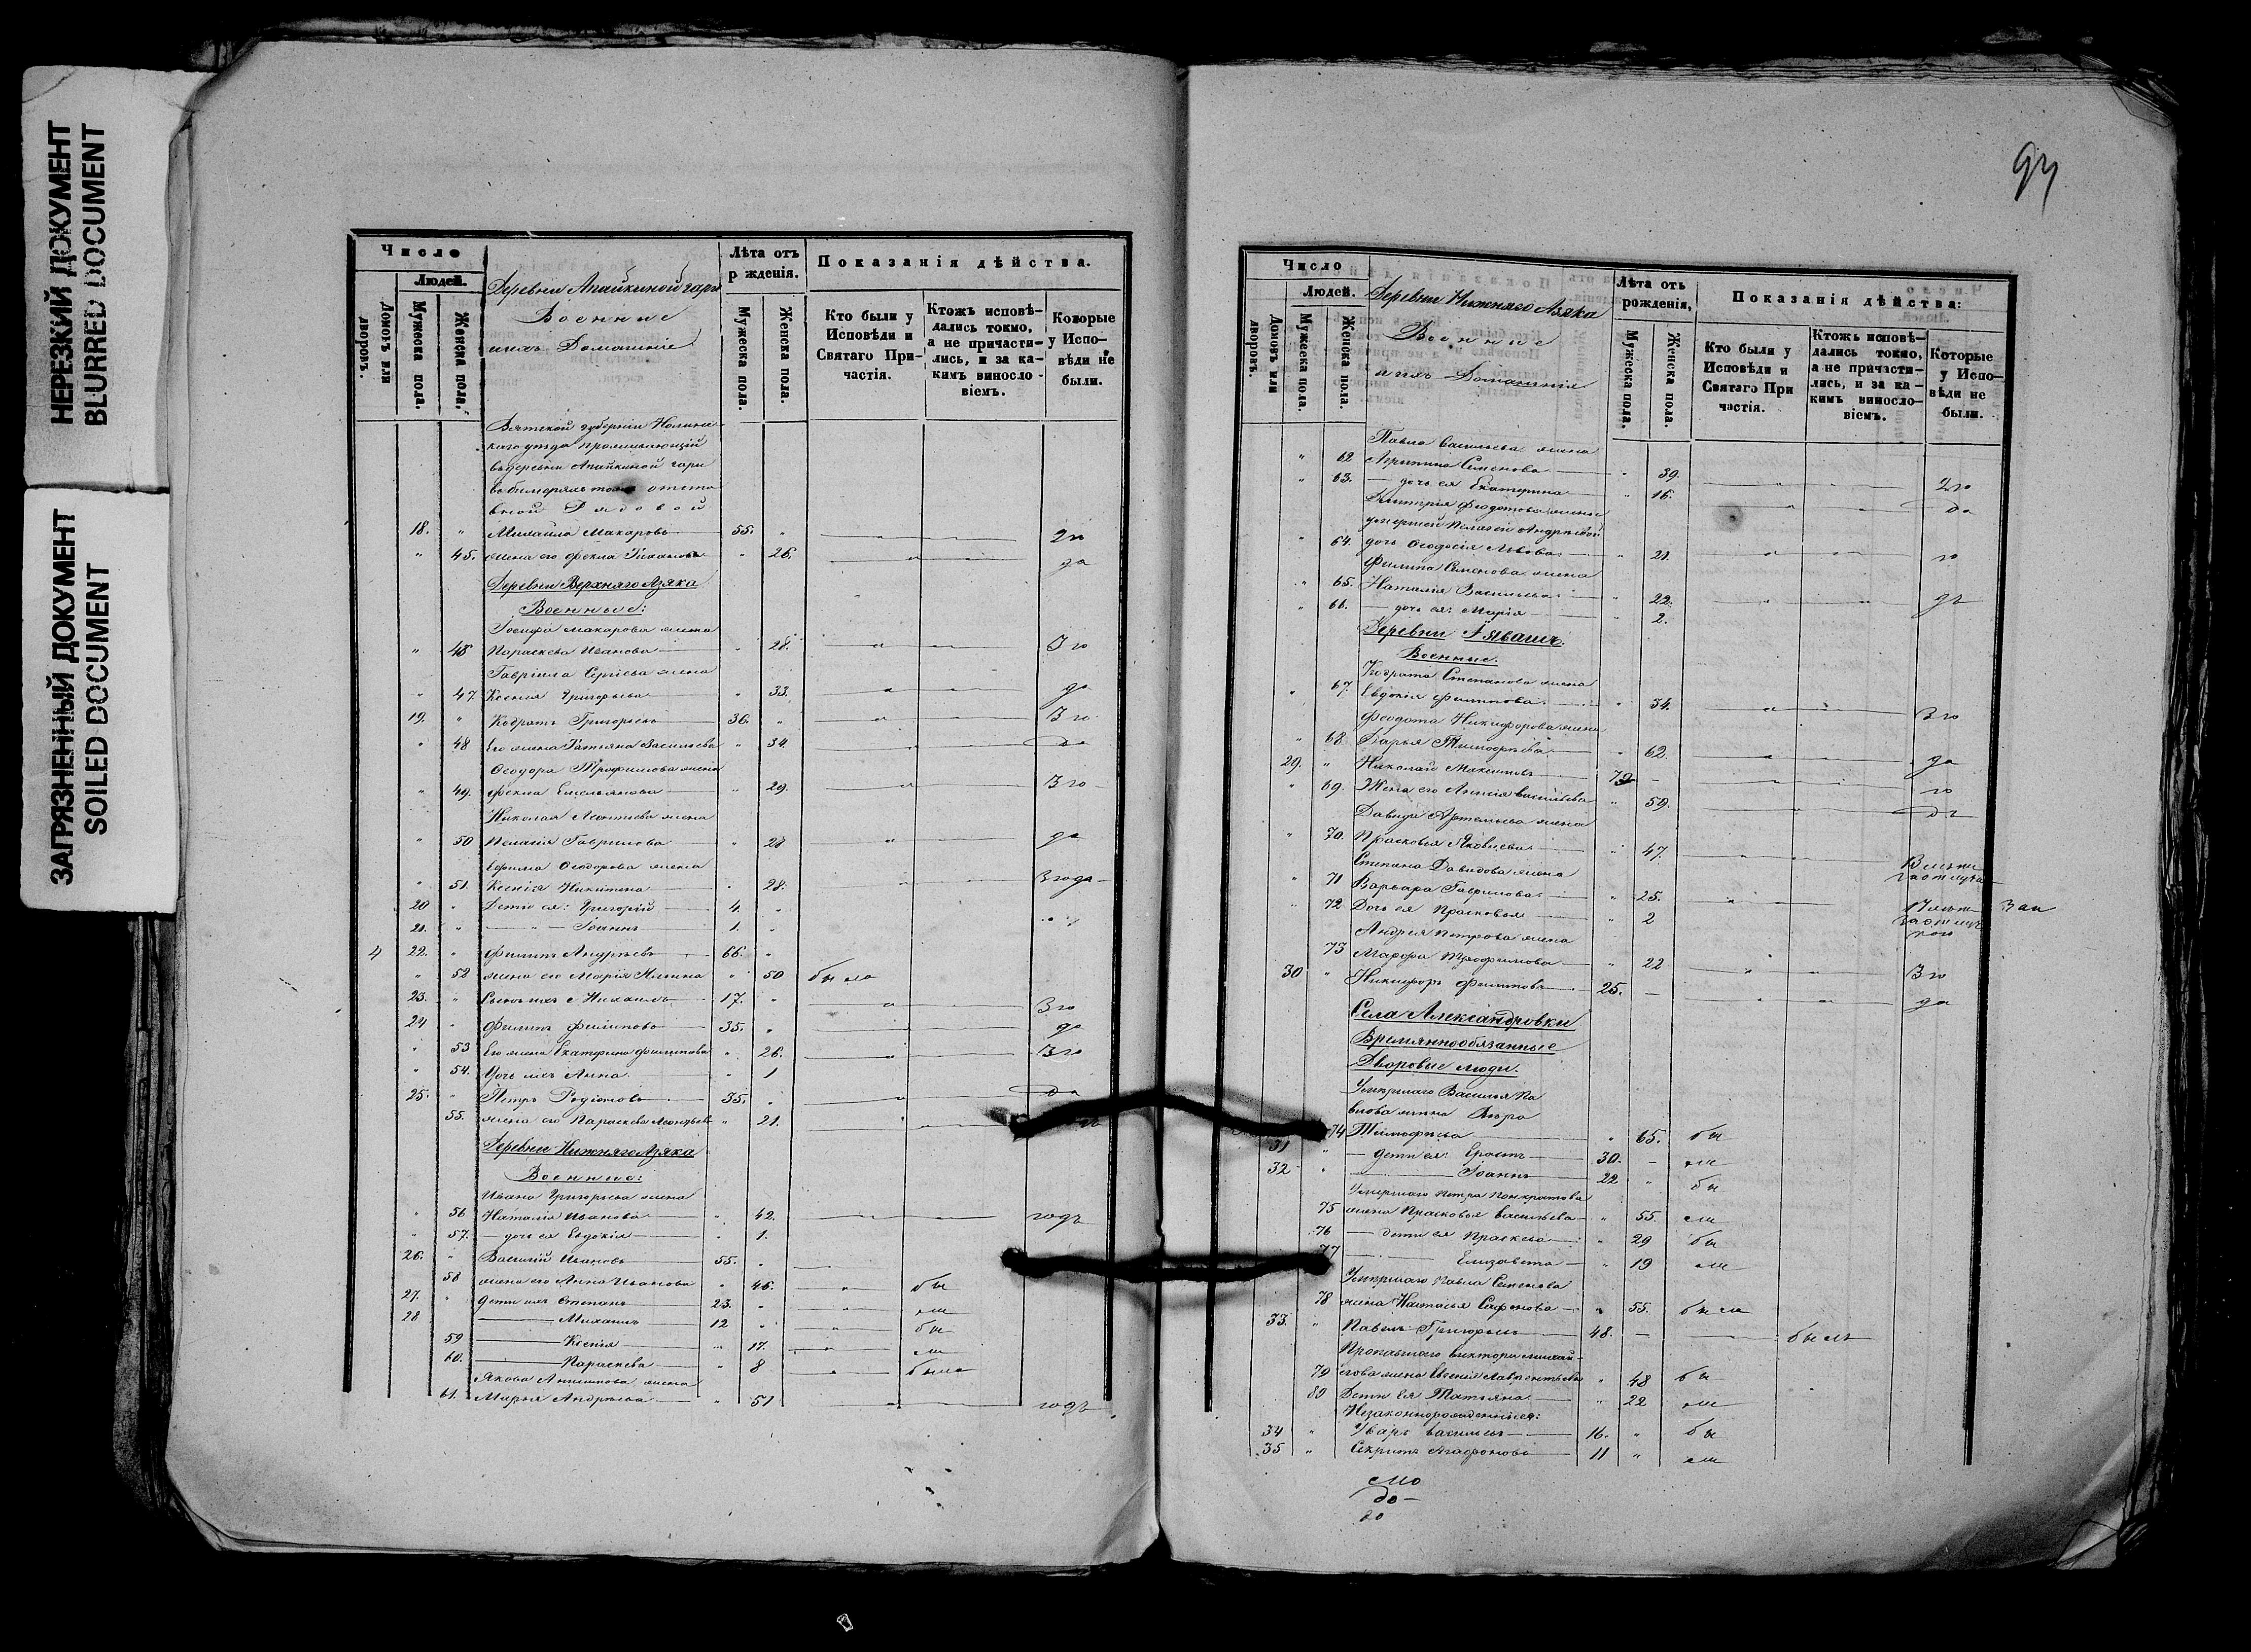 НЕРЕЗКИЙ ДОКУМЕНТ
BLURRED DOCUMENT
ЗАГРЯЗНЕННЫЙ ДОКУМЕНТ
SOILED DOCUMENT
Число
Людей.
Домовъ или дворовъ.
Мужеска пола.
Женска пола.
Деревни Апайкиной гари
Военные
ихъ Домашніе
Лѣта отъ
р жденія.
Мужеска пола.
Женска пола.
Показанія дѣйства.
Кто были у
Исповѣди и
Святаго При-
частія.
Ктожъ исповѣ-
дались токмо,
а не причасти-
лись, и за ка-
кимъ винословіемъ.
Которые
у Испо-
вѣди не
были.
Вятской губерніи Нолинс
каго уѣзда проживающій
въ деревни Апайкиной гари
18. " Михаило Макаровъ 55. "
" 45. жена его Фекла " 26.
Деревни Верхняго Азяка
Военные:
Іосифа Макарова жена
" 46 Параскева Иванова " 28. 3 го
Гавріила Сергіева жена
" 47. Ксенія Григорьева " 33. да
19. " Кодратъ Григорьевъ 36. " 3 го
" 48 Его жена Татьяна Васильева " 34. да
Ѳеодора Трофимова жена
" 49. Фекла Емельянова " 29. 3 го
Николая Леонтьева жена
" 50 Пелагія Гаврилова " 28 да
Ефима Ѳеодорова жена
" 51. Ксенія Никитина " 28. 3 года
20 " Дети ея: Григорій 4. "
21. " Іоаннъ 1. "
4 22. " Филипъ Андреевъ 66. "
" 52 жена его Марія Ильина " 50 была
23. " Сынъ ихъ Михаилъ 17. " 3 го
24 " Филипъ Филипово 35. " да
" 53 Его жена Екатерина Филипова " 26. 3 го
" 54. Дочь ихъ Анна " 1
25. " Петръ Родіоновъ 35. " да
55. жена его Параскева " 21.
Деревни Нижняго Азяка
Военные:
Ивана Григорьева жена
" 56 Наталія Иванова " 42. годъ
" 57. дочь ея Евдокія " 1.
26. " Василій Ивановъ 55. "
58 жена его Анна Иванова " 46. бы
27. " дети ихъ Степанъ 23. " ли
28 Михаилъ 12 " бы
59 Ксенія " 17. ли
60. Параскева " 8 была
Якова жена
61. Марья Андреева " 51 годъ
Число
Людей.
Домовъ или дворовъ.
Мужеска пола.
Женска пола.
Деревни Нижняго Азяка
Военные
и ихъ Домашніе
Лѣта отъ
рожденія,
Мужеска пола.
Женска пола.
Показанія дѣйства:
Кто были у
Исповѣди и
Святаго При
частія.
Ктожъ исповѣ-
дались токмо,
а не причасти-
лись, и за ка-
кимъ винословіемъ.
Которые
у Испо-
вѣди не
были.
Павла Васильева жена
" 62 Агрипина Семенова " 39. 2 го
" 63. дочь ея Екатерина " 16. да
Дмитрія Ѳеодотова жены
умершей Пелагеи Андреевой
" 64. дочь Ѳеодосія Львова " 21. го
Филипа Семенова жена
" 65. Наталія Васильева " 22. дъ
" 66. дочь ея: Марія " 2.
Деревни
Военные.
Кодрата Степанова жена
" 67. Евдокія Филипова " 34. 3 го
Ѳеодота Никифорова жена
" 68. Дарья Тимофеева " 62. да
29. " Николай Максимовъ 79 го
" 69. Жена его Васильева " 59. да
Давида Артемьева жена
" 70. Прасковья Яковлева " 47.
Степана Давидова жена
" 71 Варвара Гаврилова " 25.
" 72 Дочь ея Прасковья " 2
Андрея Петрова жена
73 Марфа Трофимова " 22 3 го
30 " Никифоръ Филиповъ 25. да
Села Александровки
Времяннообязанные
Дворовые люди.
Умершаго Василья Па
влова жена Вѣра
74 Тимофеева " 65. бы
31 " дети ея: Ерастъ 30. ли
32 " Іоаннъ 22 " бы
Умершаго Петра Понкратова
75 жена Прасковья Васильева " 55. ли
76 дети ея Праскева " 29 бы
77 Елизавета " 19 ли
Умершаго Павла Семенова
78 жена Настасья Сафонова " 55. была
33. " Павелъ Григорьевъ 48. былъ
79 " 48 бы
80 Дети ея Татьяна " 22 ли
Незаконнорожденныя:
34 " Уваръ Васильевъ 16. " бы
35 " Агафоновъ 11 " ли